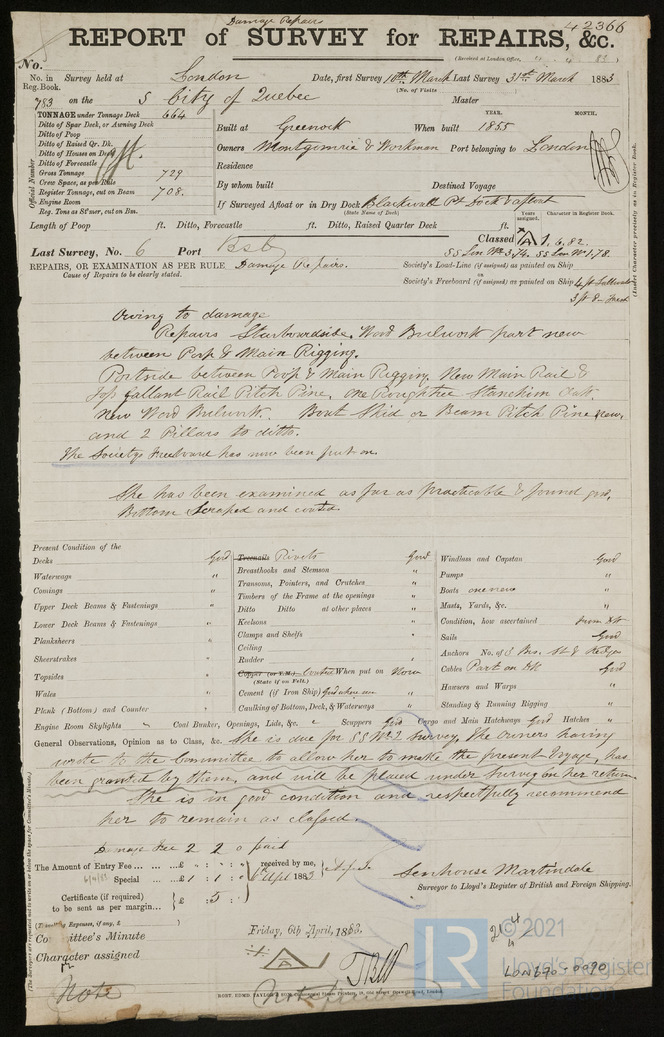 Damage Repairs
42366
REPORT of SURVEY for REPAIRS, &c.
(Received at London Office,
No.
No. in Reg. Book. Survey held at London Date, first Survey 10th March Last Survey 31st March 1883
(No. of Visits
783 on the S City of Quebec Master
TONNAGE under Tonnage Deck 664
Ditto of Spar Deck, or Awning Deck
Ditto of Poop
Ditto of Raised Qr. Dk.
Ditto of Houses on Deck
Ditto of Forecastle
Gross Tonnage 729
Crew Space, as per Rule
Register Tonnage, cut on Beam 708
Engine Room
Reg. Tons as St'mer, cut on Bm.
Official Number
YEAR. MONTH.
Built at Greenock When built 1855
Owners Montgomrie & Workman Port belonging to London
Residence
By whom built Destined Voyage
If Surveyed Afloat or in Dry Dock Blackwall Pt Dock & afloat
(State Name of Dock)
Years assigned. Character in Register Book.
Length of Poop ft. Ditto, Forecastle ft. Ditto, Raised Quarter Deck ft.
Classed A 1. 6.82.
SS Lon No 3.74. SS Lon No 1.78.
Last Survey, No. 6 Port
REPAIRS, OR EXAMINATION AS PER RULE Damage Repairs.
Cause of Repairs to be clearly stated.
Society's Load-Line (if assigned) as painted on Ship
or
Society's Freeboard (if assigned) as painted on Ship
(Insert Character precisely as in Register Book.
Owing to damage
Repairs Starboardside. Wood Bulwork part new
between Poop & Main Rigging.
Portside between Poop & Main Rigging New Main Rail &
Top gallant Rail Pitch Pine, one Roughtree Stanchion Oak.
New Wood Bulwork. Boat Skid or Beam Pitch Pine new,
and 2 Pillars to ditto.
The Societys Freeboard has now been put on.
She has been examined as far as practicable & found good,
Bottom Scraped and coated
Present Condition of the
Decks Good
Waterways "
Comings "
Upper Deck Beams & Fastenings "
Lower Deck Beams & Fastenings "
Planksheers "
Sheerstrakes "
Topsides "
Wales "
Plank (Bottom) and Counter "
Treenails Rivets Good
Breasthooks and Stemson "
Transoms, Pointers, and Crutches "
Timbers of the Frame at the openings "
Ditto Ditto at other places "
Keelsons "
Clamps and Shelfs "
Ceiling "
Rudder "
Copper (or Y.M.) Coated When put on Now
(State if on Felt.)
Cement (if Iron Ship) Good where seen
Caulking of Bottom, Deck, & Waterways "
Windlass and Capstan Good
Pumps "
Boats one new "
Masts, Yards, &c. "
Condition, how ascertained from dk
Sails Good
Anchors No. of 3 Brs. St & Kedges
Cables Part on dk Good
Hawsers and Warps "
Standing & Running Rigging "
Engine Room Skylights " Coal Bunker, Openings, Lids, &c. " Scuppers Good Cargo and Main Hatchways Good Hatches "
General Observations, Opinion as to Class, &c. She is due for SS No 2 Survey, The Owners having
wrote to the Committee to allow her to make the present Voyage, has
been granted by them, and will be placed under Survey on her return.
She is in good condition and respectfully recommend
her to remain as classed.
Damage Fee 2 2 0 paid
The Amount of Entry Fee ... ... £ : : received by me,
Special ... ... £ 1 : 1 : 6 Apl 1883
Certificate (if required) £ : 5 :
to be sent as per margin...
(Travelling Expenses, if any, £ )
Senhouse Martindale
Surveyor to Lloyd's Register of British and Foreign Shipping.
Committee's Minute Friday, 6th April, 1883.
Character assigned A
Note
LON690-0090
© 2021
LR
Lloyd's Register
Foundation